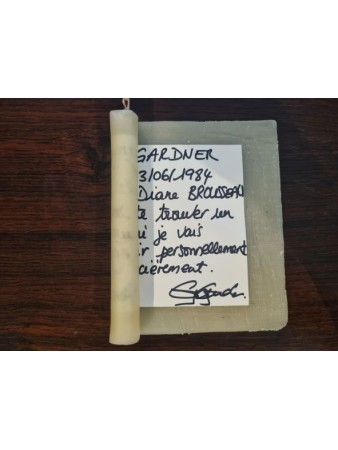 GARDNER
3/06/1984
Diane BROUSSEAU
te trouver un
je vais
personnellement
cièrement.